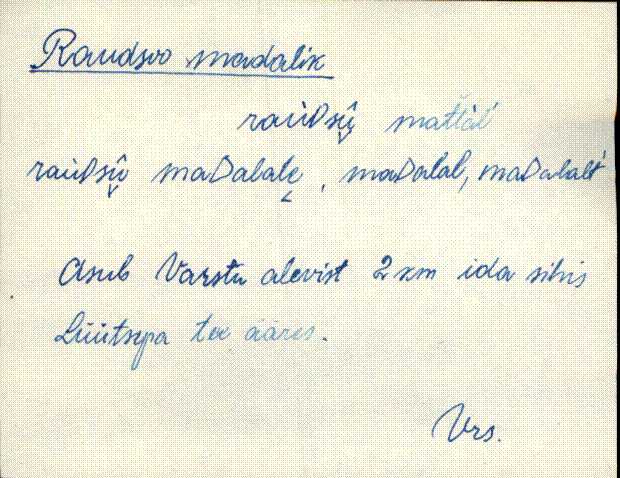 Raudsoo madalik
raúDsȗ̬ matl̀al'
raúDsȗ̬ maDalale̬, maDalal, maDalalt'
Asub Varstu alevist 2 km ida sihis
Lüütsepa tee ääres.
Vrs.